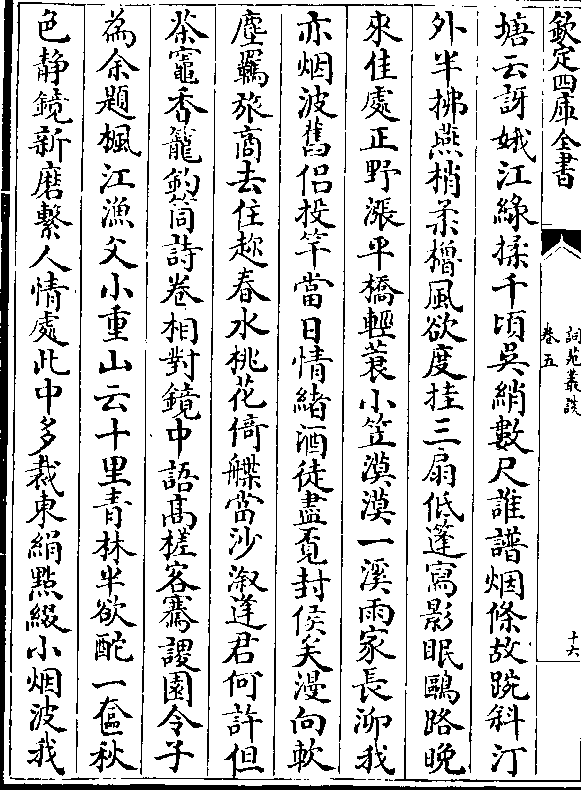 欽定四庫全書
詞苑叢談
卷五
十六
塘云訝娥江綠揉千頃吳綃數尺誰譜烟條故踠斜汀
外半拂燕梢柔櫓風欲度挂三扇低篷寫影眠鷗路晚
來佳處正野漲平橋輕蓑小笠漠漠一溪雨家長泖我
亦烟波舊侣投竿當日情緒酒徒盡覓封侯矣漫向軟
塵羈旅商去住趂春水桃花倚艓當沙溆逢君何許但
茶竈香籠釣筒詩卷相對鏡中語髙槎客騫謖園令子
為余題楓江漁父小重山云十里青林半欲酡一奩秋
色静鏡新磨繫人情處此中多裁東絹㸃綴小烟波我